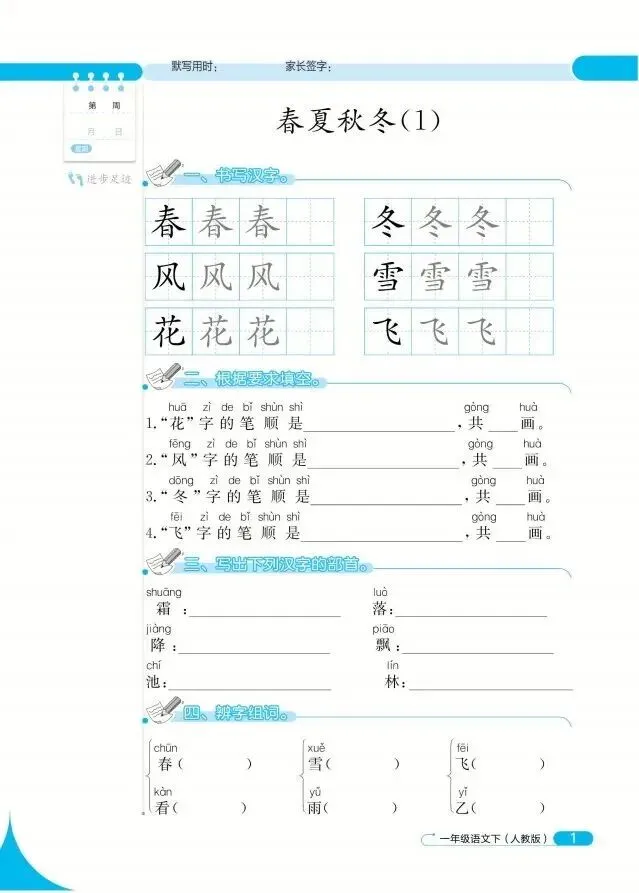 默写用时： 家长签字：
第 周
月 日
星期
进步足迹
春夏秋冬(1)
一、书写汉字。
春春春 冬冬冬
风风风 雪雪雪
花花花 飞飞飞
二、根据要求填空。
huā zì de bǐ shùn shì gòng huà
1.“花”字的笔顺是____________________，共____画。
fēng zì de bǐ shùn shì gòng huà
2.“风”字的笔顺是____________________，共____画。
dōng zì de bǐ shùn shì gòng huà
3.“冬”字的笔顺是____________________，共____画。
fēi zì de bǐ shùn shì gòng huà
4.“飞”字的笔顺是____________________，共____画。
三、写出下列汉字的部首。
shuāng luò
霜：____________________ 落:____________________
jiàng piāo
降：____________________ 飘：____________________
chí lín
池：____________________ 林：____________________
四、辨字组词。
chūn xuě fēi
春( ) 雪( ) 飞( )
kàn yǔ yǐ
看( ) 雨( ) 乙( )
一年级语文下（人教版） 1